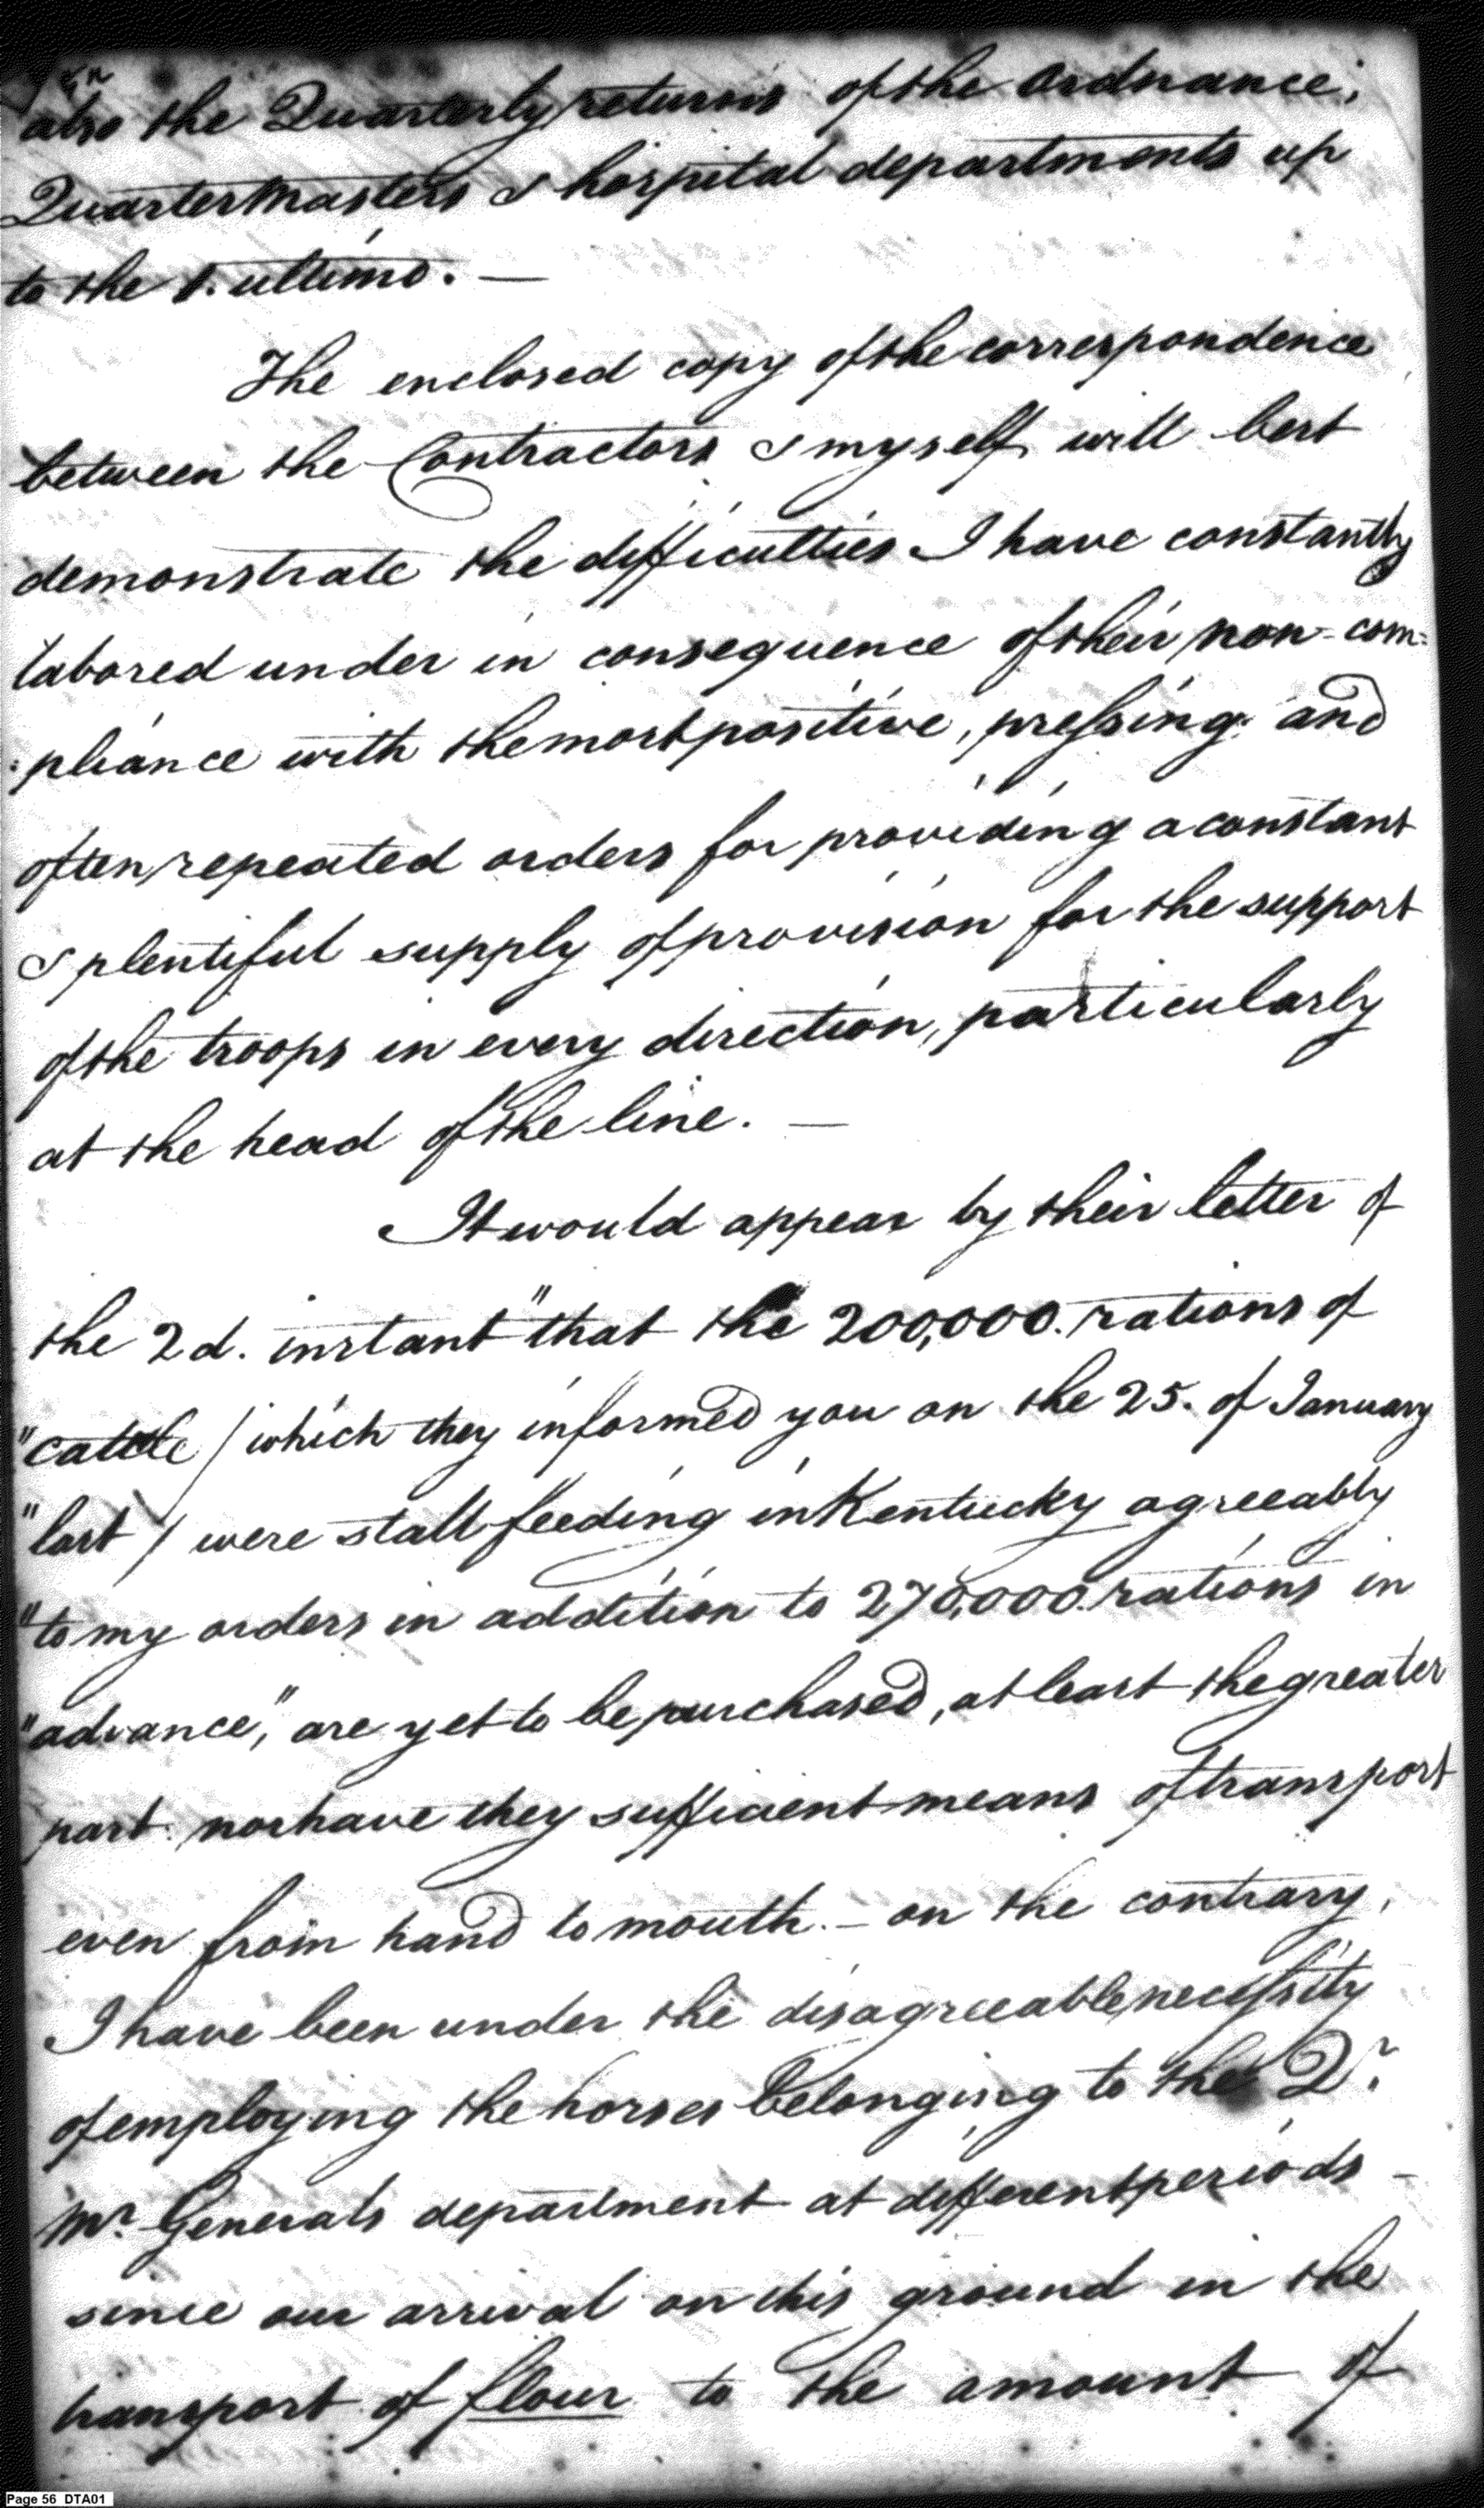 also the Quarterly returns of the Ordnance,
QuarterMasters & hospital departments up
to the 1. ultimo. —
The enclosed copy of the correspondence
between the Contractors & myself will best
demonstrate the difficulties I have constantly
labored under in consequence of their non-com=
:pliance with the most positive, pressing and
often repeated orders for providing a constant
& plentiful supply of provision for the support
of the troops in every direction, particularly
at the head of the line. —
It would appear by their letter of
the 2d. instant "that the 200,000. rations of
"cattle / which they informed you on the 25. of January
"last / were stall feeding in Kentucky agreeably
"to my orders in addition to 270,000. rations in
"advance," are yet to be purchased, at least the greater
part: nor have they sufficient means of transport
even from hand to mouth. — on the contrary,
I have been under the disagreeable necessity
of employing the horses belonging to the Qr.
Mr. Generals department at different periods —
since our arrival on this ground in the
transport of flour to the amount of
Page 56 DTA01